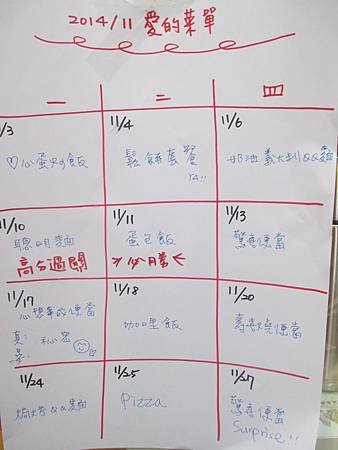 2014/11 愛的菜單
一 二 四
11/3 11/4 11/6
♡心蛋炒飯 鬆餅套餐 奶油義大利QQ麵
Ya!!
11/10 11/11 11/13
聰明麵 蛋包飯 驚喜便當
高分過關 必勝
11/17 11/18 11/20
心想事成便當 咖哩飯 壽喜燒便當
真:
祕密
11/24 11/25 11/27
焗烤QQ麵 Pizza 驚喜便當
Surprise!!